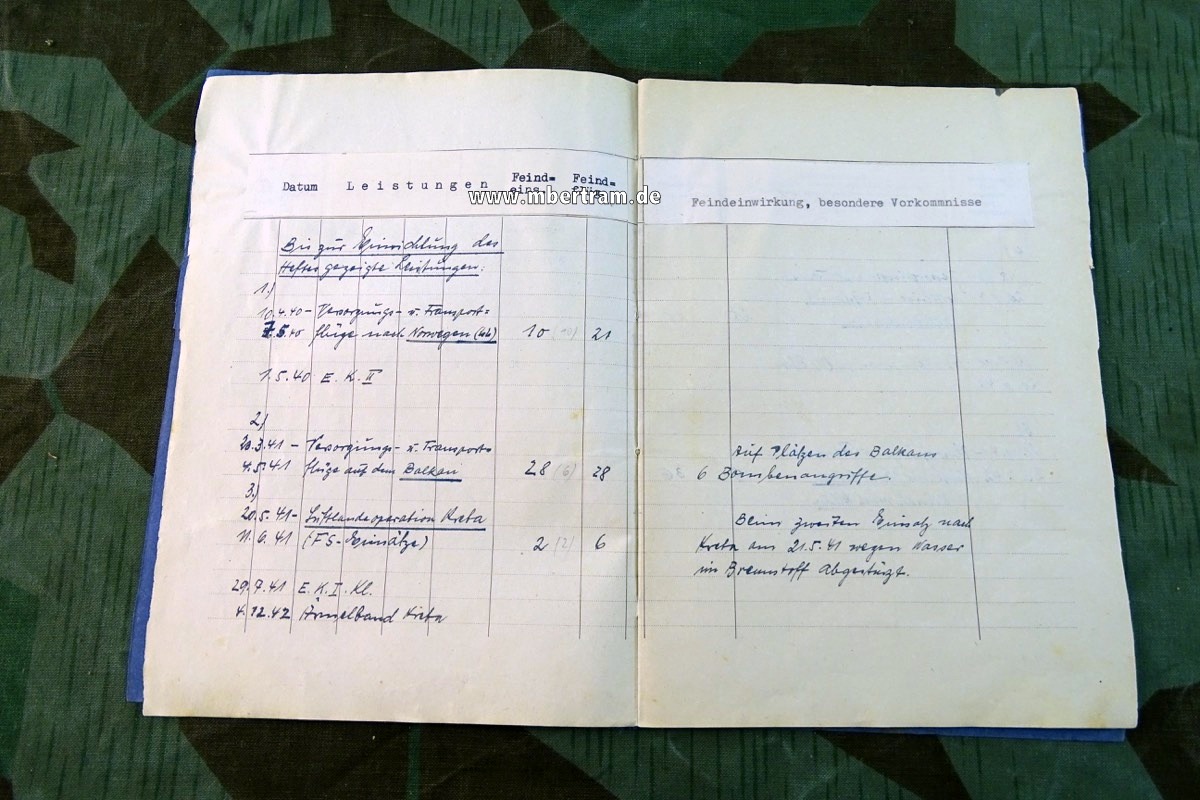 Datum Leistungen Feind= Feind=
eins. flüg.
www.mbertram.de
Bis zur Einrichtung des
Heftes gezeigte Leistungen:
1.)
10.4.40- Versorgungs- u. Transport=
7.5.40 flüge nach Norwegen 10 (10) 21
1.5.40 E. K. II
2.)
20.3.41- Versorgungs- u. Transport=
4.5.41 flüge auf dem Balkan 28 (6) 28
3.)
20.5.41- Luftlandeoperation Kreta
11.6.41 (FS-Einsätze) 2 (2) 6
29.7.41 E. K. I. Kl.
4.12.42 Ärmelband Kreta
Feindeinwirkung, besondere Vorkommnisse
Auf Plätzen des Balkans
6 Bombenangriffe.
Beim zweiten Einsatz nach
Kreta am 21.5.41 wegen Wasser
im Brennstoff abgestürzt.